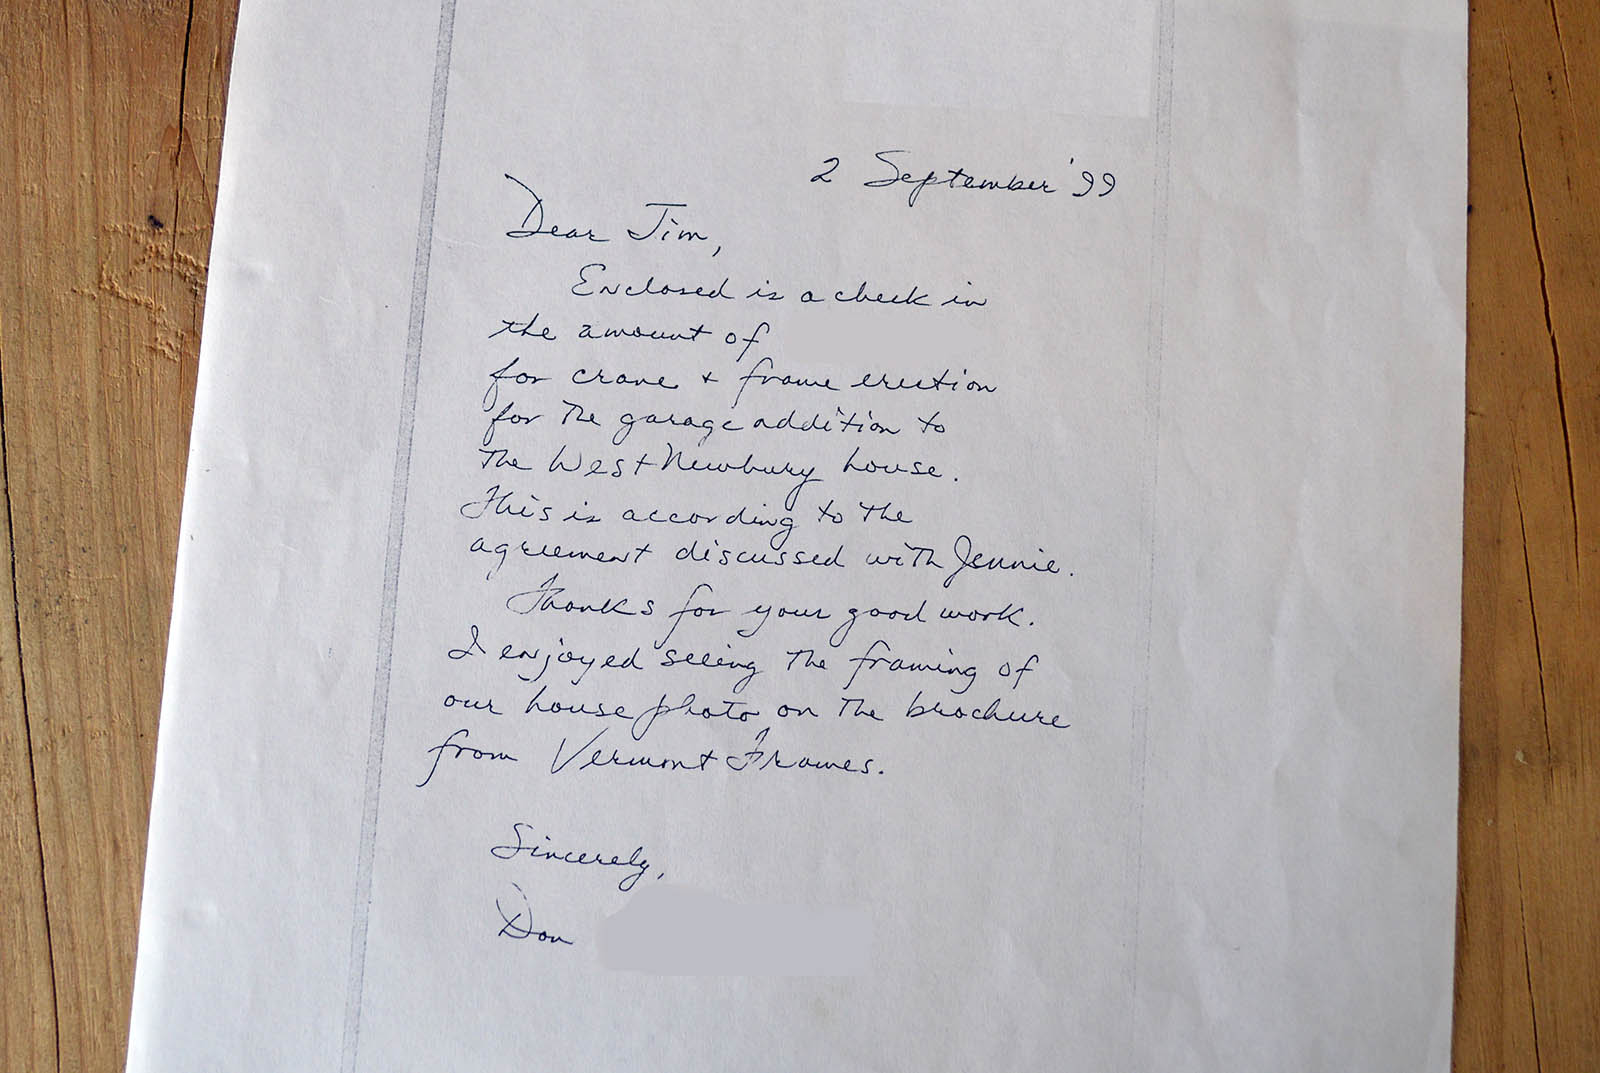 2 September '99
Dear Jim,
Enclosed is a check in
the amount of
for crane + frame erection
for the garage addition to
the West Newbury house.
This is according to the
agreement discussed with Jennie.
Thanks for your good work.
I enjoyed seeing the framing of
our house photo on the brochure
from Vermont Frames.
Sincerely,
Don